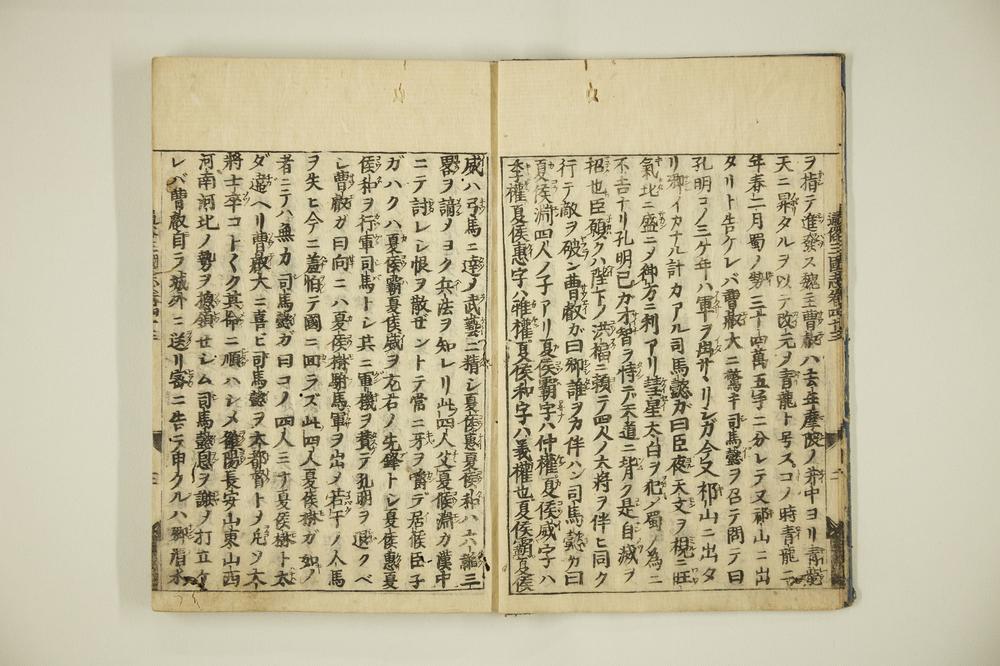 ヲ指テ進發ス魏主曹叡ハ去年摩陂ノ井中ヨリ青龍
天ニ昇タルヲ以テ改元メ青龍ト号スコノ時青龍二
年春二月蜀ノ勢三十四萬五手ニ分レテ又祁山ニ出
タリト告ケレバ曹叡大ニ驚キ司馬懿ヲ召テ問テ曰
孔明コノ三ケ年ハ軍ヲ出サヾリシガ今又祁山ニ出タ
リ卿イカナル計カアル司馬懿ガ曰臣夜天文ヲ視ニ旺
氣北ニ盛ニメ御方ニ利アリ彗星太白ヲ犯ハ蜀ノ為ニ
不吉ナリ孔明已カ才智ヲ恃デ天道ニ背ク是自滅ヲ
招也臣願クハ陛下ノ洪福ニ頼テ四人ノ大将ヲ伴ヒ同ク
行テ敵ヲ破ン曹叡ガ曰卿誰ヲカ伴ハン司馬懿カ曰
夏侯淵四人ノ子アリ夏侯霸字ハ仲權夏侯威字ハ
季權夏侯惠字ハ雅權夏侯和字ハ義權也夏侯霸夏侯
威ハ弓馬ニ達メ武藝ニ精シ夏侯惠夏侯和ハ六韜三
畧ヲ諳メヨク兵法ヲ知レリ此四人父夏侯淵カ漢中
ニテ討レシ恨ヲ散ゼントテ常ニ牙ヲ嚼デ居候臣子
ガハクハ夏侯霸夏侯威ヲ左右ノ先鋒トシ夏侯惠夏
侯和ヲ行軍司馬トシ共ニ軍機ヲ賛テ孔明ヲ退クベ
シ曹叡ガ曰向ニハ夏侯楙駙馬軍ヲ出メ若干ノ人馬
ヲ失ヒ今ニ羞怕テ國ニ回ラズ此四人夏侯楙ガ如ノ
者ニテハ無カ司馬懿ガ曰コノ四人ニナ夏侯楙ト太
ダ違ヘリ曹叡大ニ喜ビ司馬懿ヲ大都督トメ凡ソ大
將士卒コトく其命ニ順ハシメ雒陽長安山東山西
河南河北ノ勢ヲ總領セシム司馬懿恩ヲ謝メ打立ケ
レバ曹叡自ラ城外ニ送リ密ニ告テ申クルハ卿渭水